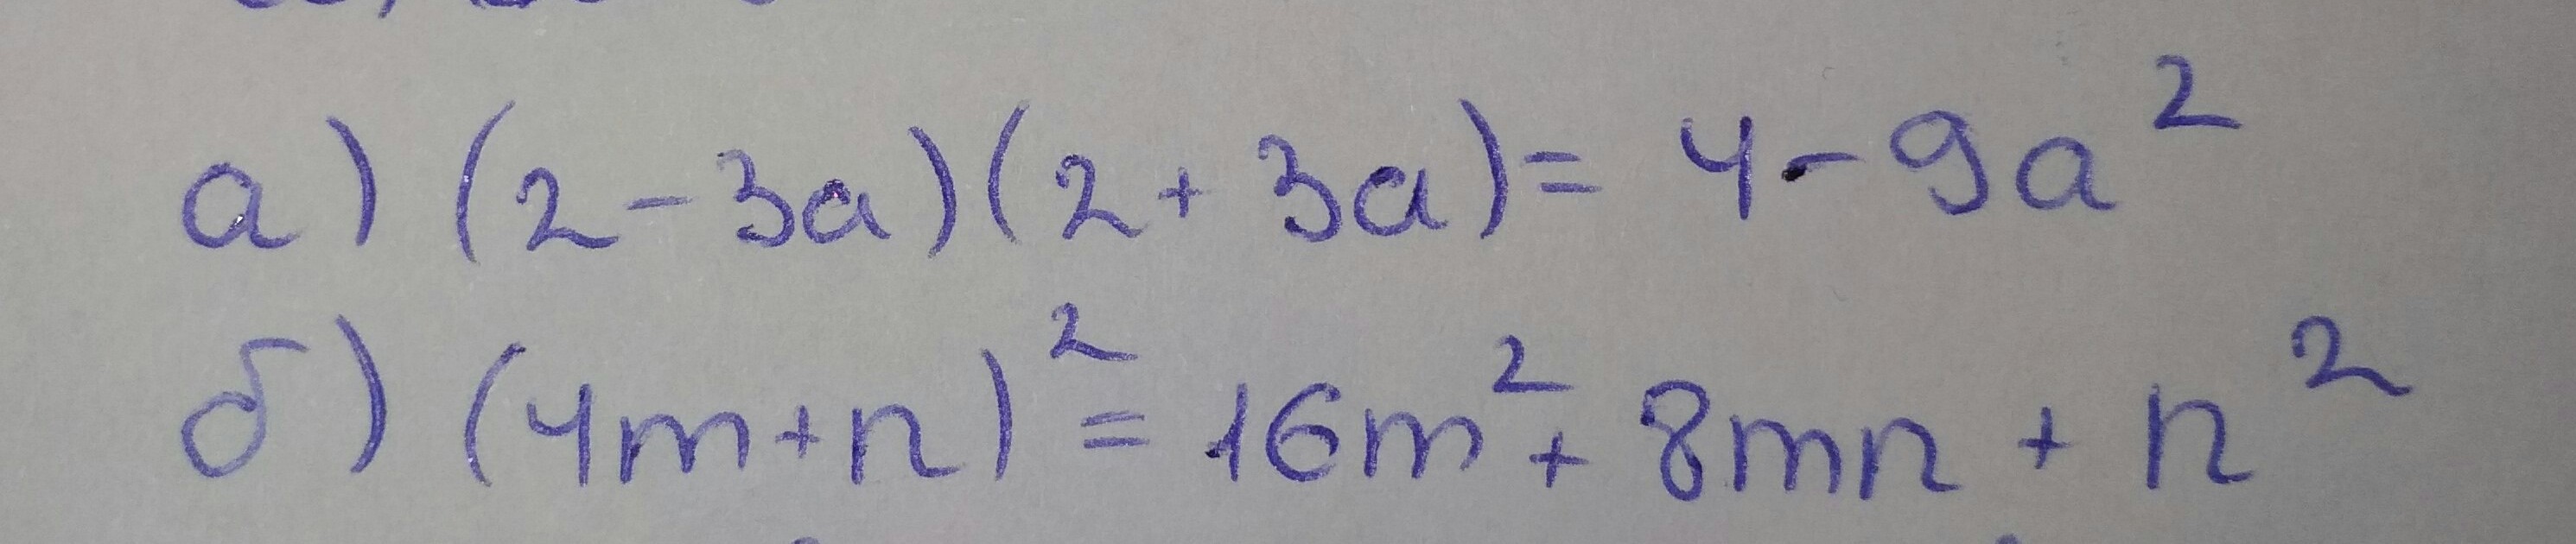 а) (2-3a)(2+3a)= 4-9a²
б) (4m+n)² = 16m² + 8mn + n²